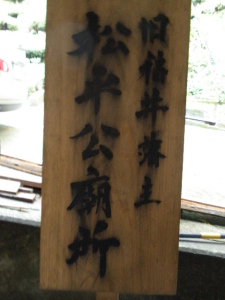 旧福井藩主
松平公廟所